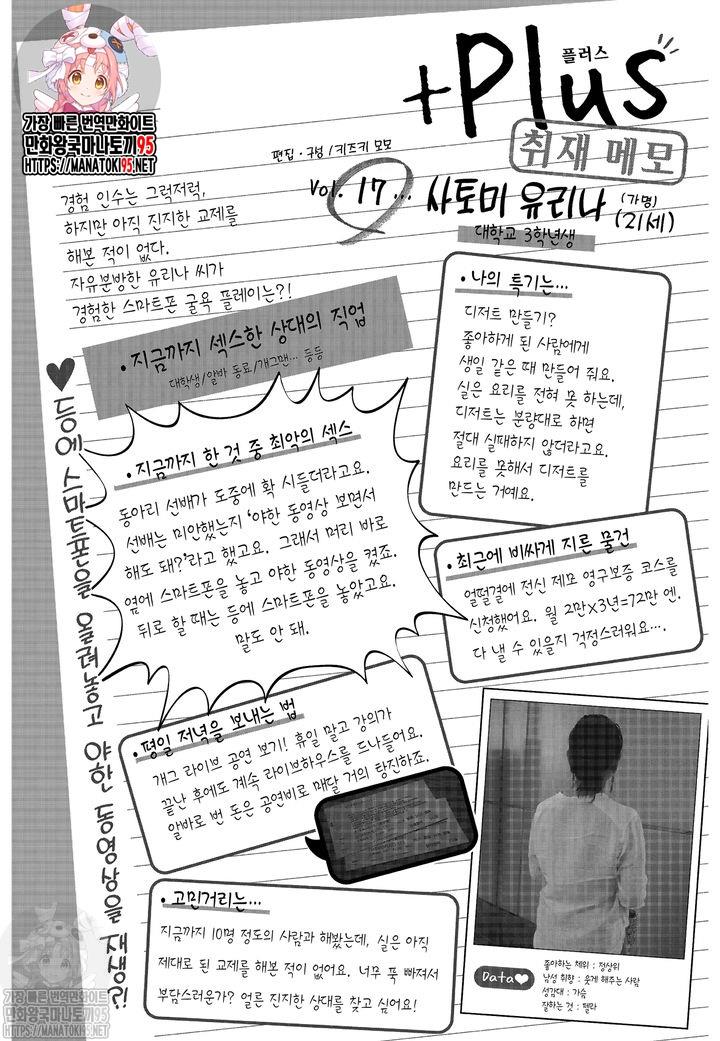 가장 빠른 번역만화사이트
만화왕국마나토끼95
HTTPS://MANATOKI95.NET
+Plus
플러스
취재 메모
편집·구성 / 키즈키 모모
Vol. 17... 사토미 유리나 (가명) (21세)
대학교 3학년생
경험 인수는 그럭저럭,
하지만 아직 진지한 교제를
해본 적이 없다.
자유분방한 유리나 씨가
경험한 스마트폰 굴욕 플레이는?!
• 지금까지 섹스한 상대의 직업
대학생/알바 동료/개그맨... 등등
• 나의 특기는...
디저트 만들기?
좋아하게 된 사람에게
생일 같은 때 만들어 줘요.
실은 요리를 전혀 못 하는데,
디저트는 분량대로 하면
절대 실패하지 않더라고요.
요리를 못해서 디저트를
만드는 거예요.
• 지금까지 한 것 중 최악의 섹스
동아리 선배가 도중에 확 시들더라고요.
선배는 미안했는지 '야한 동영상 보면서
해도 돼?'라고 했고요. 그래서 머리 바로
옆에 스마트폰을 놓고 야한 동영상을 켰죠.
뒤로 할 때는 등에 스마트폰을 놓았고요.
말도 안 돼.
• 최근에 비싸게 지른 물건
얼떨결에 전신 제모 영구보증 코스를
신청했어요. 월 2만X3년=72만 엔.
다 낼 수 있을지 걱정스러워요....
♥ 등에 스마트폰을 올려놓고 야한 동영상을 재생?!
• 평일 저녁을 보내는 법
개그 라이브 공연 보기! 휴일 말고 강의가
끝난 후에도 계속 라이브하우스를 드나들어요.
알바로 번 돈은 공연비로 매달 거의 탕진하죠.
• 고민거리는...
지금까지 10명 정도의 사람과 해봤는데, 실은 아직
제대로 된 교제를 해본 적이 없어요. 너무 푹 빠져서
부담스러운가? 얼른 진지한 상대를 찾고 싶어요!
Data♥
좋아하는 체위 : 정상위
남성 취향 : 웃게 해주는 사람
성감대 : 가슴
잘하는 것 : 펠라
가장 빠른 번역만화사이트
만화왕국마나토끼95
HTTPS://MANATOKI95.NET